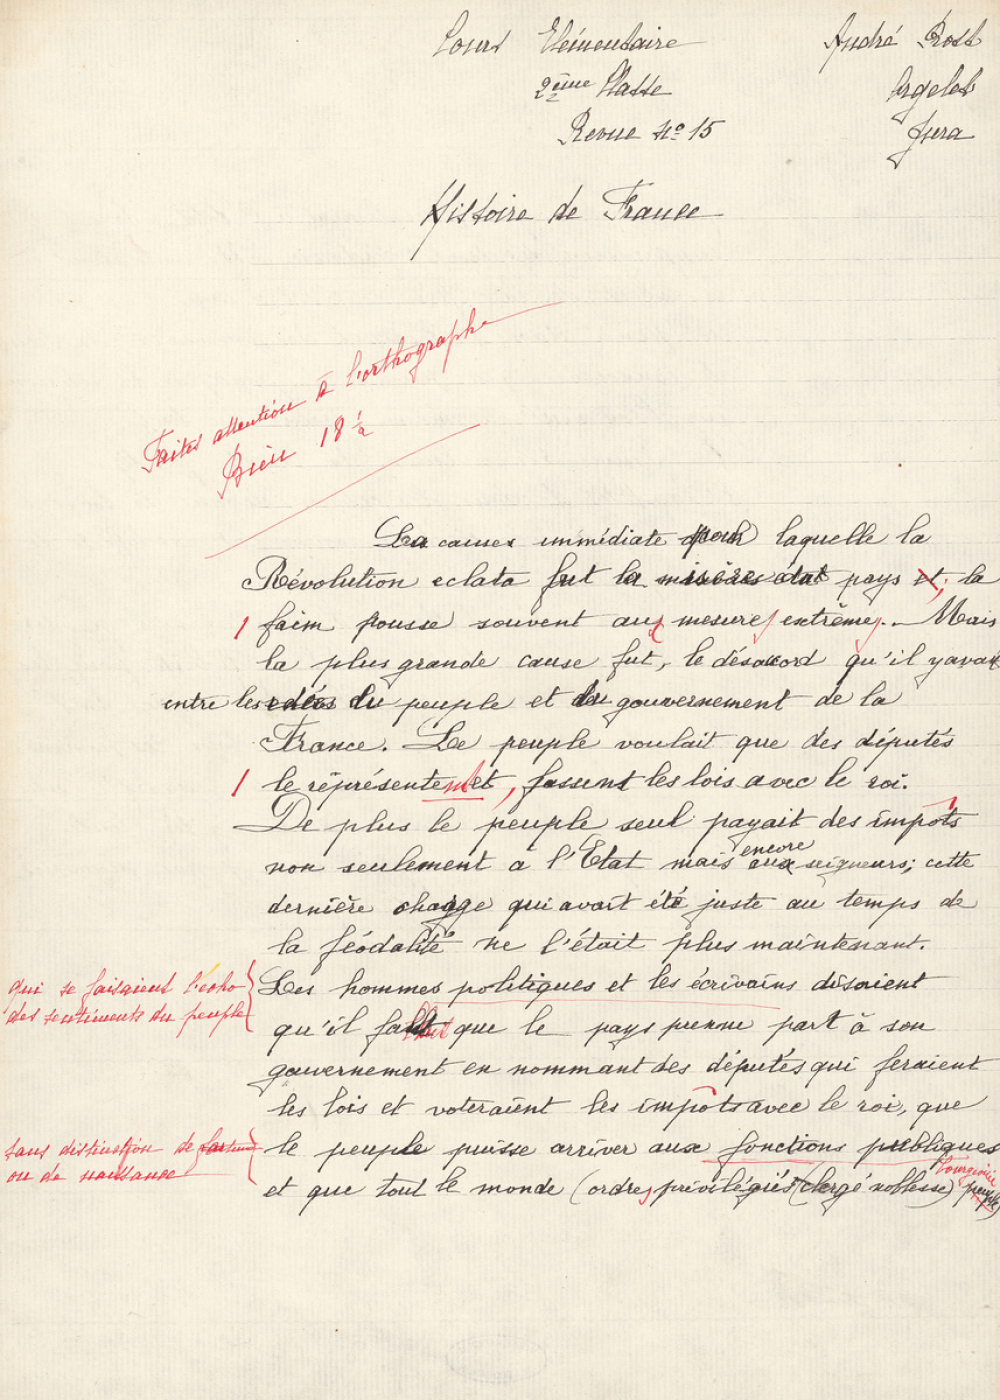 Cours Elémentaire
André Rost
2ème Classe
Argelet
Revue No 15
Jura
Histoire de France
Faites attention à l'orthographe
Bien 18 1/2
La causes immédiate pour laquelle la
Révolution eclata fut la misères état pays et, la
faim pousse souvent aux mesure extrême. Mais
la plus grande cause fut, le désaccord qu'il y avait
entre les idées du peuple et du gouvernement de la
France. Le peuple voulait que des députés
le réprésentent, fassent les lois avec le roi.
De plus le peuple seul payait des impôts
encore
non seulement a l'Etat mais aux seigneurs; cette
dernière charge qui avait été juste au temps de
la féodalité ne l'était plus maintenant.
qui se faisaient l'écho
des sentiments du peuple
Les hommes politiques et les écrivains disaient
qu'il fallait que le pays prenne part à son
gouvernement en nommant des députés qui feraient
les lois et voteraient les impôts avec le roi, que
sans distinction de fortune
ou de naissance
le peuple puisse arriver aux fonctions publiques
bourgeoisie
et que tout le monde (ordre, privilégiés (clergé noblesse) peuple)